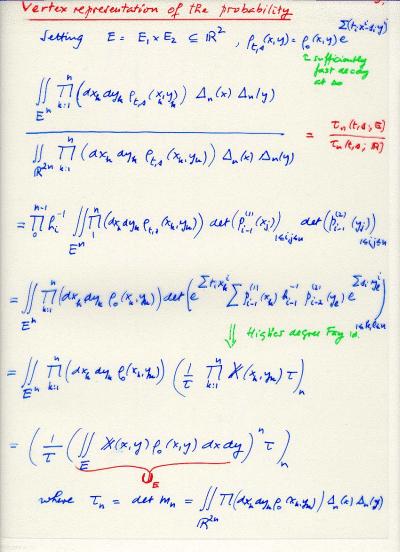 Vertex representation of the probability
Setting E = E₁ × E₂ ⊆ ℝ², ρ_{t,s}(x,y) = ρ₀(x,y) e^{Σ(t_i x^i - s_i y^i)}
sufficiently
fast decay
at ∞
∬_{E^n} ∏_{k=1}^n (dx_k dy_k ρ_{t,s}(x_k, y_k)) Δ_n(x) Δ_n(y)
/ ∬_{ℝ^{2n}} ∏_{k=1}^n (dx_k dy_k ρ_{t,s}(x_k, y_k)) Δ_n(x) Δ_n(y) = τ_n(t,s; E) / τ_n(t,s; ℝ)
= ∏_0^{n-1} h_i^{-1} ∬_{E^n} ∏_1^n (dx_k dy_k ρ_{t,s}(x_k, y_k)) det(p_{i-1}^{(1)}(x_j))_{1≤i,j≤n} det(p_{i-1}^{(2)}(y_j))_{1≤i,j≤n}
= ∬_{E^n} ∏_{k=1}^n (dx_k dy_k ρ₀(x_k, y_k)) det(e^{Σ t_i x_k^i} Σ p_{i-1}^{(1)}(x_k) h_{i-1}^{-1} p_{i-1}^{(2)}(y_ℓ) e^{Σ s_i y_ℓ^i})_{1≤k,ℓ≤n}
⇓ Higher degree Fay id.
= ∬_{E^n} ∏_{k=1}^n (dx_k dy_k ρ₀(x_k, y_k)) (1/τ ∏_{k=1}^n 𝕏(x_k, y_k) τ)_n
= (1/τ (∬_E 𝕏(x,y) ρ₀(x,y) dx dy)^n τ)_n
𝕌_E
where τ_n = det m_n = ∬_{ℝ^{2n}} ∏(dx_k dy_k ρ₀(x_k, y_k)) Δ_n(x) Δ_n(y)